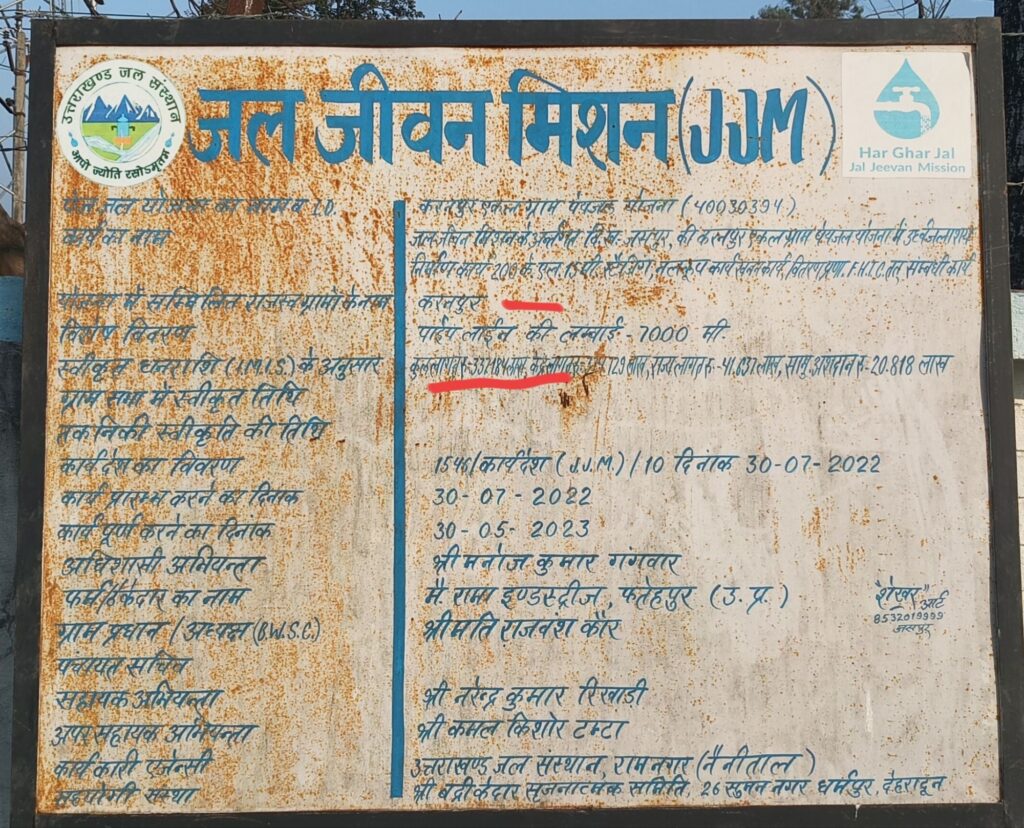 उत्तराखण्ड जल संस्थान
आपो ज्योति रसोऽमृतम्
जल जीवन मिशन (JJM)
Har Ghar Jal
Jal Jeevan Mission
पेज जल योजना का नाम व I.D. करनपुर एकल ग्राम पेयजल योजना (40030394)
कार्य का नाम जल जीवन मिशन के अर्न्तगत वि.ख. जसपुर, की करनपुर एकल ग्राम पेयजल योजना में उर्ध्व जलाशय
निर्माण कार्य 200 के.एल. 15 मी. स्टेजिंग, नलकूप कार्य खनन कार्य, वितरण प्रणा. F.H.T.C. तत् सम्बंधी कार्य
योजना में सम्मिलित राजस्व ग्रामों के नाम करनपुर
विशेष विवरण पाईप लाईन की लम्बाई - 7000 मी.
स्वीकृत धनराशि (I.M.I.S.) के अनुसार कुल लागत रु.-337.184 लाख, केन्द्र लागत रु. 129 लाख, राज्य लागत रु - 41.637 लाख, सामु. अंशदान रु - 20.818 लाख
ग्राम सभा में स्वीकृत तिथि
तकनिकी स्वीकृति की तिथि
कार्यदेश का विवरण 1546/कार्यदेश (J.J.M.) / 10 दिनाक 30-07-2022
कार्य प्रारम्भ करने का दिनाक 30-07-2022
कार्य पूर्ण करने का दिनाक 30-05-2023
अधिशासी अभियन्ता श्री मनोज कुमार गंगवार
फर्म/ठेकेदार का नाम मै. रामा इण्डस्ट्रीज, फतेहपुर (उ.प्र.)
शेखर आर्ट
8532019999
जसपुर
ग्राम प्रधान / अध्यक्ष (B.W.S.C.) श्रीमति राजवंश कौर
पंचायत सचिव
सहायक अभियन्ता श्री नरेन्द्र कुमार रिखाडी
अपर सहायक अभियन्ता श्री कमल किशोर टम्टा
कार्यकारी एजेन्सी उत्तराखण्ड जल संस्थान, रामनगर (नैनीताल)
सहयोगी संस्था श्री बद्री केदार सृजनात्मक समिति, 26 सुमन नगर धर्मपुर, देहरादून